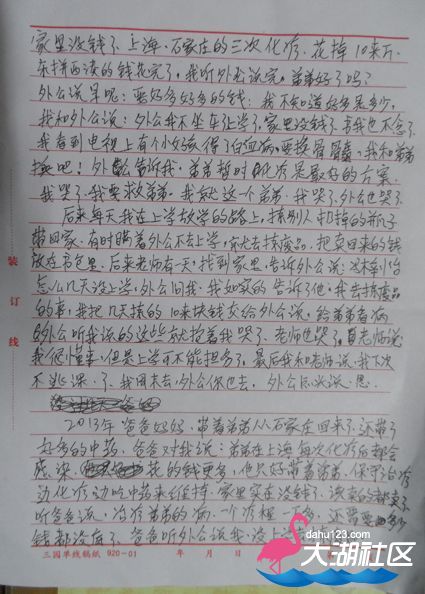 家里没钱了、上海、石家庄的三次化疗、花掉10来万、
东拼西凑的钱花完了。我听外公说完，弟弟好了吗？
外公说早呢：要好多好多的钱：我不知道好多是多少，
我和外公说：外公我不坐车上学了，家里没钱了，书我也不念了，
我看到电视上有个小孩得了白血病。要换骨髓，我和弟弟
换吧！外公告诉我，弟弟暂时化疗是最好的方案、
我哭了，我要救弟弟。我就这一个弟弟，我哭了、外公也哭了
后来每天我在上学放学的路上，捡别人扔掉的瓶子
带回家、有时瞒着外公不去上学，就去捡废品、把卖回来的钱
放在书包里。后来老师有一天，找到家里、告诉外公说：
怎么几天没上学，外公问我、我如实的告诉了他，我去捡废品
的事，我把几天捡的10来块钱交给外公说，给弟弟看病
外公听我说的这些就抱着我哭了、老师也哭了，老师说
我很懂事、但是上学可不能担误了。最后我和老师说，我下次
不逃课了、
2013年爸爸妈妈，带着弟弟从石家庄回来了，还带了
好多的中药，爸爸对我说：弟弟在上海每次化疗后都会
感染 花的钱更多，他只好带着弟弟、保守治疗
边化疗边吃中药来维持、家里实在没钱了、该卖的都卖了
听爸爸说，治疗弟弟的病，一个疗程一万多，还需要
钱都没底了、爸爸听外公说我、没上
装订线
三园单线稿纸 920-01 年 月 日
dahu123.com
大湖社区